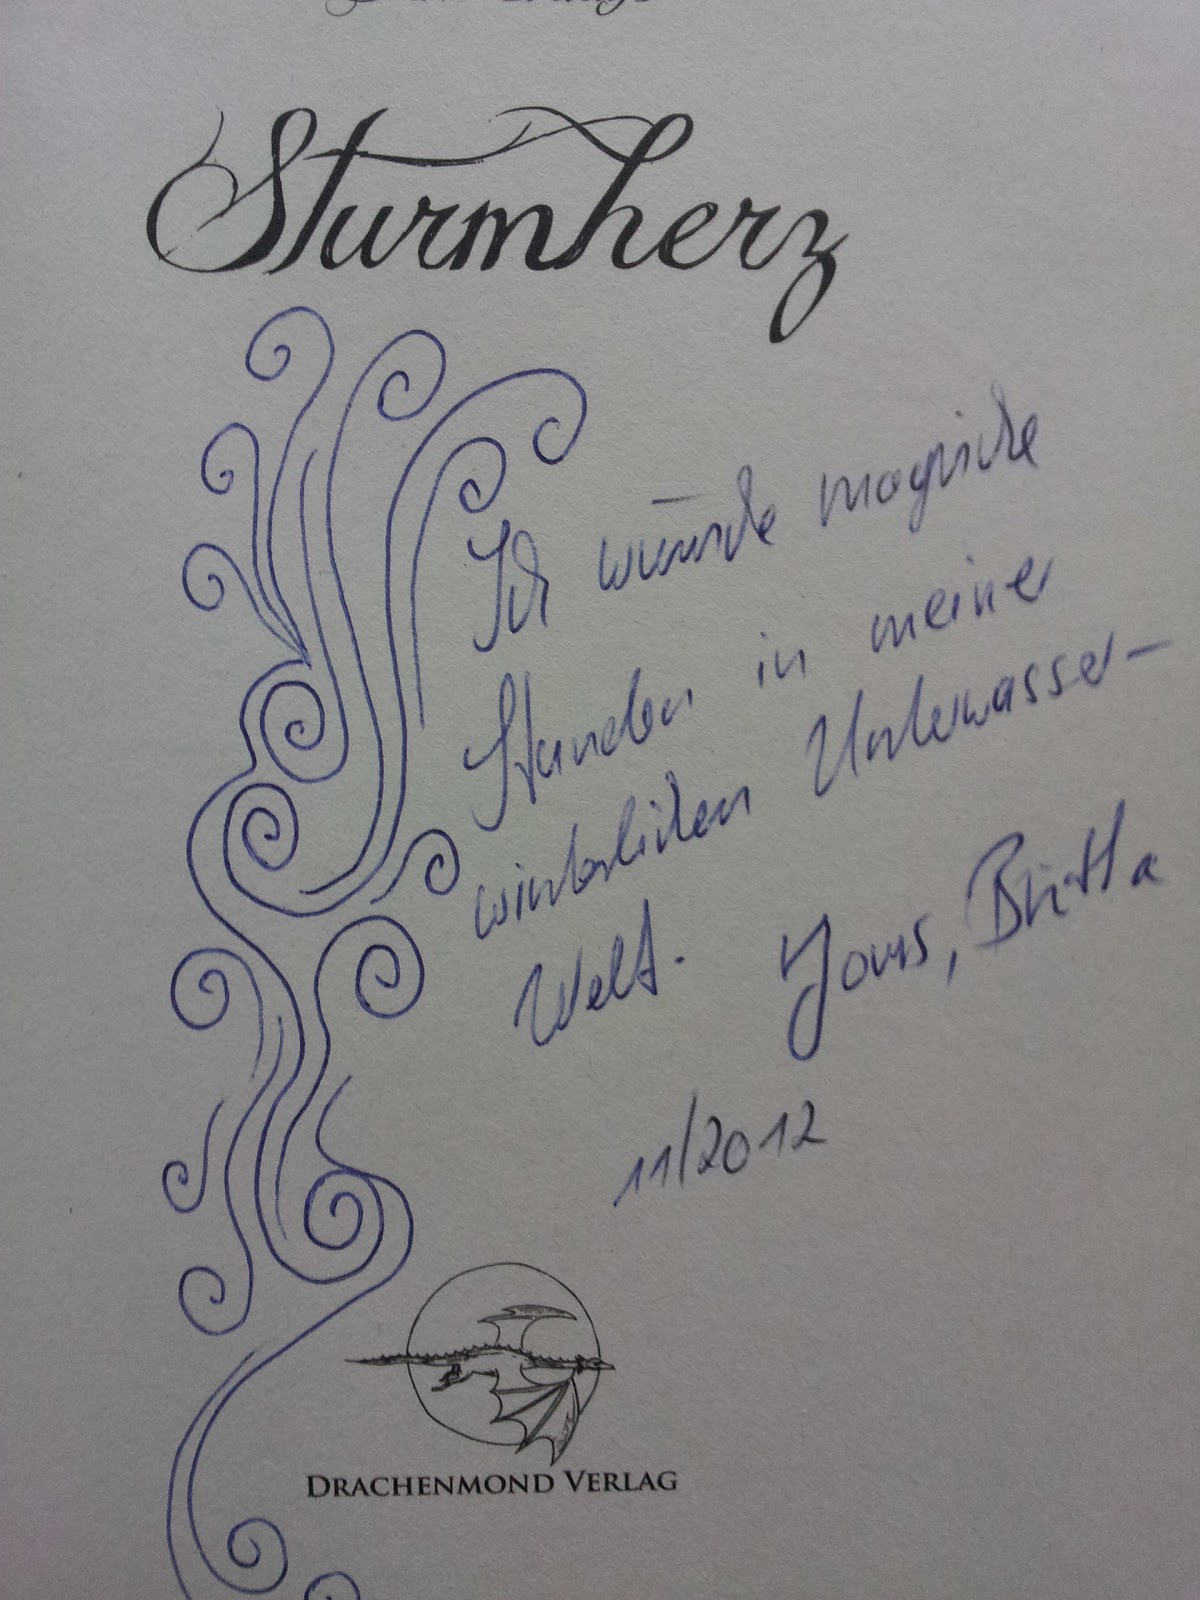 Sturmherz
Ich wünsche magische
Stunden in meiner
winterlichen Unterwasser-
Welt. Yours, Britta
11/2012
DRACHENMOND VERLAG